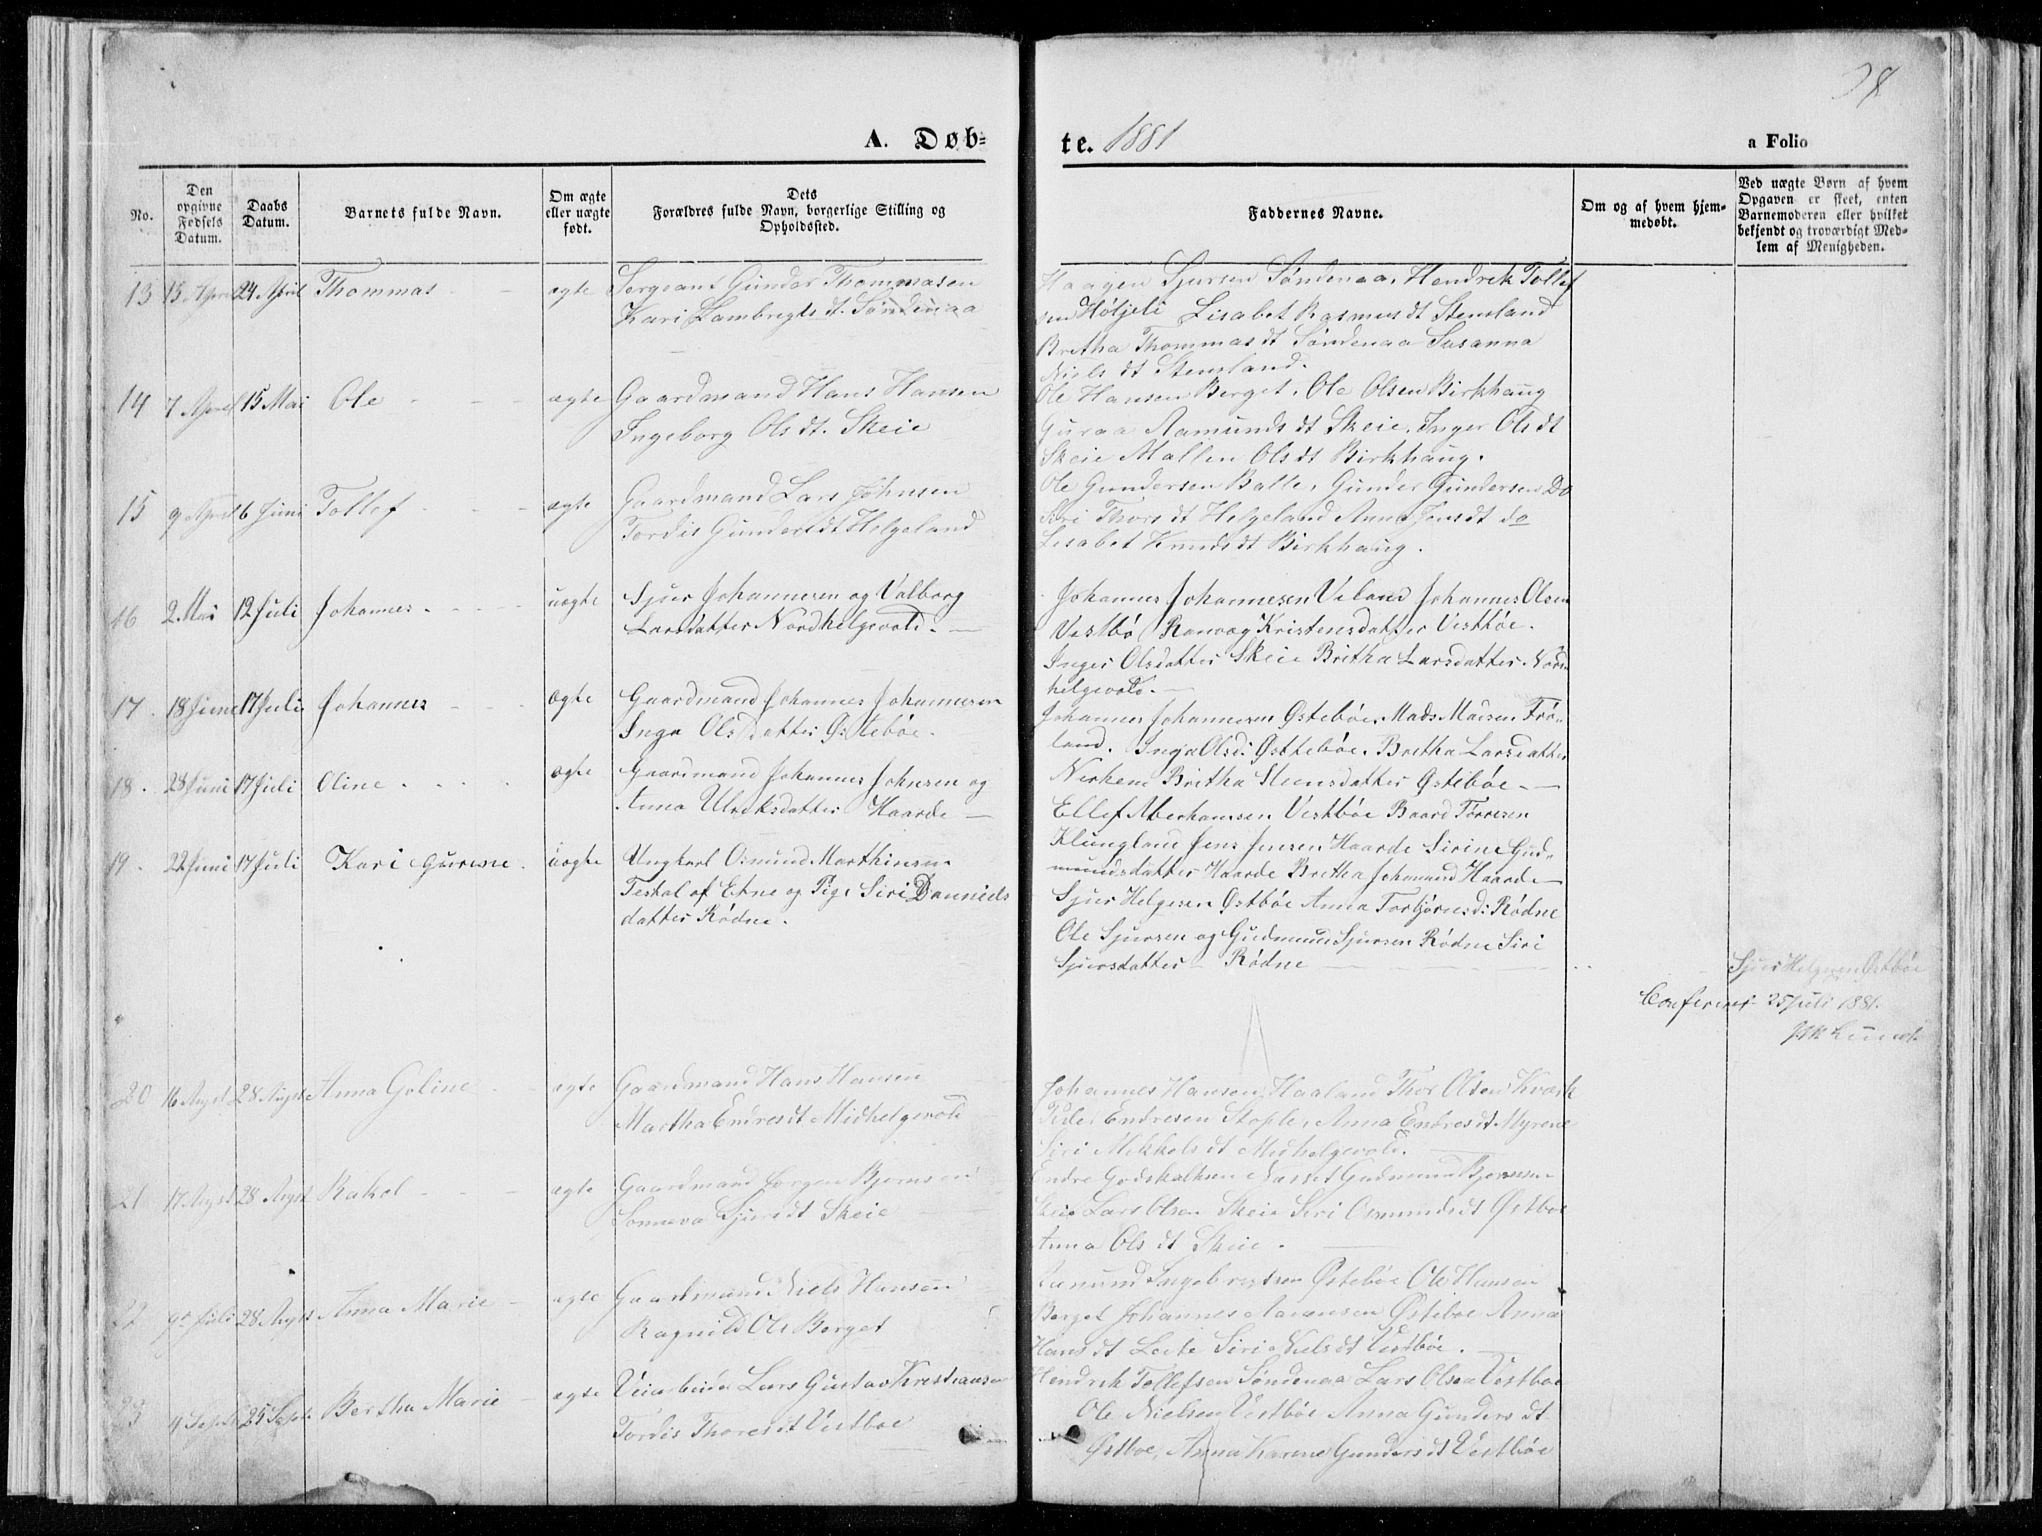 98
A. Døb=
te. 1881
a Folio
No.
Den opgivne Fødsels Datum.
Daabs Datum.
Barnets fulde Navn.
Om ægte eller uægte født.
Dets Forældres fulde Navn, borgerlige Stilling og Opholdssted.
Faddernes Navne.
Om og af hvem hjemmedøbt.
Ved uægte Børn af hvem Opgaven er skeet, enten Barnemoderen eller hvilket bekjendt og troværdigt Medlem af Menigheden.
13 15 April 24 April Thommas - - ægte Sergeant Gunder Thommasen
Kari Lambregts dt. Søndenaa
Haagen Sjursen Søndenaa, Hendrek Tollef
sen Høljeli Lisabet Rasmus dt Stensland
Bretha Thommas dt Søndenaa Susanna
Niels dt Stensland.
14 7 April 15 Mai Ole - - - ægte Gaardmand Hans Hansen
Ingeborg Ols dt. Skeie
Ole Hansen Berget, Ole Olsen Birkhaug
Guraa Aamunds dt Skeie, Inger Ols dt
Skeie Mallen Ols dt Birkhaug.
15 9 April 6 Juni Tollef - - - ægte Gaardmand Lars Johnsen
Tordis Gunders dt Helgeland
Ole Gundersen Balle, Gunder Gundersen Do
Siri Thors dt Helgeland Anna Jens dt do
Lisabet Knuds dt Birkhaug.
16 2 Mai 12 Juli Johannes - - - uægte Sjur Johannesen og Valborg
Larsdatter Nordhelgevold. -
Johannes Johannesen Veland Johannes Olsen
Vestbø Ranvæg Kristensdatter Vestbøe.
Inger Olsdatter Skeie Bretha Larsdatter Nord
helgevold. -
17. 18 Juni 17 Juli Johannes - - - ægte Gaardmand Johannes Johannesen
Inga Olsdatter Østebøe.
Johannes Johannesen Østebøe. Mads Madsen Frø-
land. Inga Olsd: Østtebøe. Bretha Larsdatter
Nerheim Bretha Steensdatter Østebøe. -
18. 28 Juni 17 Juli Oline. . . . ægte Gaardmand Johannes Johnsen og
Anna Ulreksdatter Haarde -
Ellef Aberhamsen Vestbøe Baard Tørresen
Klungland Jens Jensen Haarde Sirine Gud-
mundsdatter Haarde Bretha Johannesd Haarde -
19. 22 Juni 17 Juli Kari Gurine. uægte Ungkarl Osmund Marthinsen
Teskal af Etne og Pige Siri Danniels
datter Rødne.
Sjur Helgesen Østbøe Anna Torbjørnsd: Rødne
Ole Sjursen og Gudmund Sjursen Rødne Siri
Sjursdatter - Rødne -
Sjur Helgesen Østbøe
Confereres 25 Juli 1881.
20 16 Augst 28 Augst Anna Goline - - ægte Gaardmand Hans Hansen
Martha Endres dt Midhelgevold
Johannes Hansen Haaland Thor Olsen Kværk
Endresen Stople, Anna Endres dt Myrene
Siri Mikkels dt Midhelgevold. -
21 17 Augst 28 Augst Rakel - - - ægte Gaardmand Jørgen Bjørnsen
Sonneva Sjurs dt Skeie -
Endre Godskalksen Næsset Gudmund Bjørnsen
Skeie Lars Olsen Skeie Siri Osmunds dt Østbøe
Anna Ols dt Skeie. -
22 9de Juli 28 Augst Anna Marie - ægte Gaardmand Niels Hansen
Ragnild Ols Berget
Ingebregtsen Østebøe Ole Hansen
Berget Johannes Aamunsen Østebøe Anna
Hans dt Leite Siri Niels dt Vestbøe. -
23 4 Septb 25 Septb Bertha Marie - ægte Lars Gustav Kristiansen
Tordis Thores dt Vestbøe
Hendrek Tollefsen Søndenaa Lars Olsen Vestbøe
Ole Nielsen Vestbøe Anna Gunders dt
Østbøe, Anna Karine Gunders dt Vestbøe